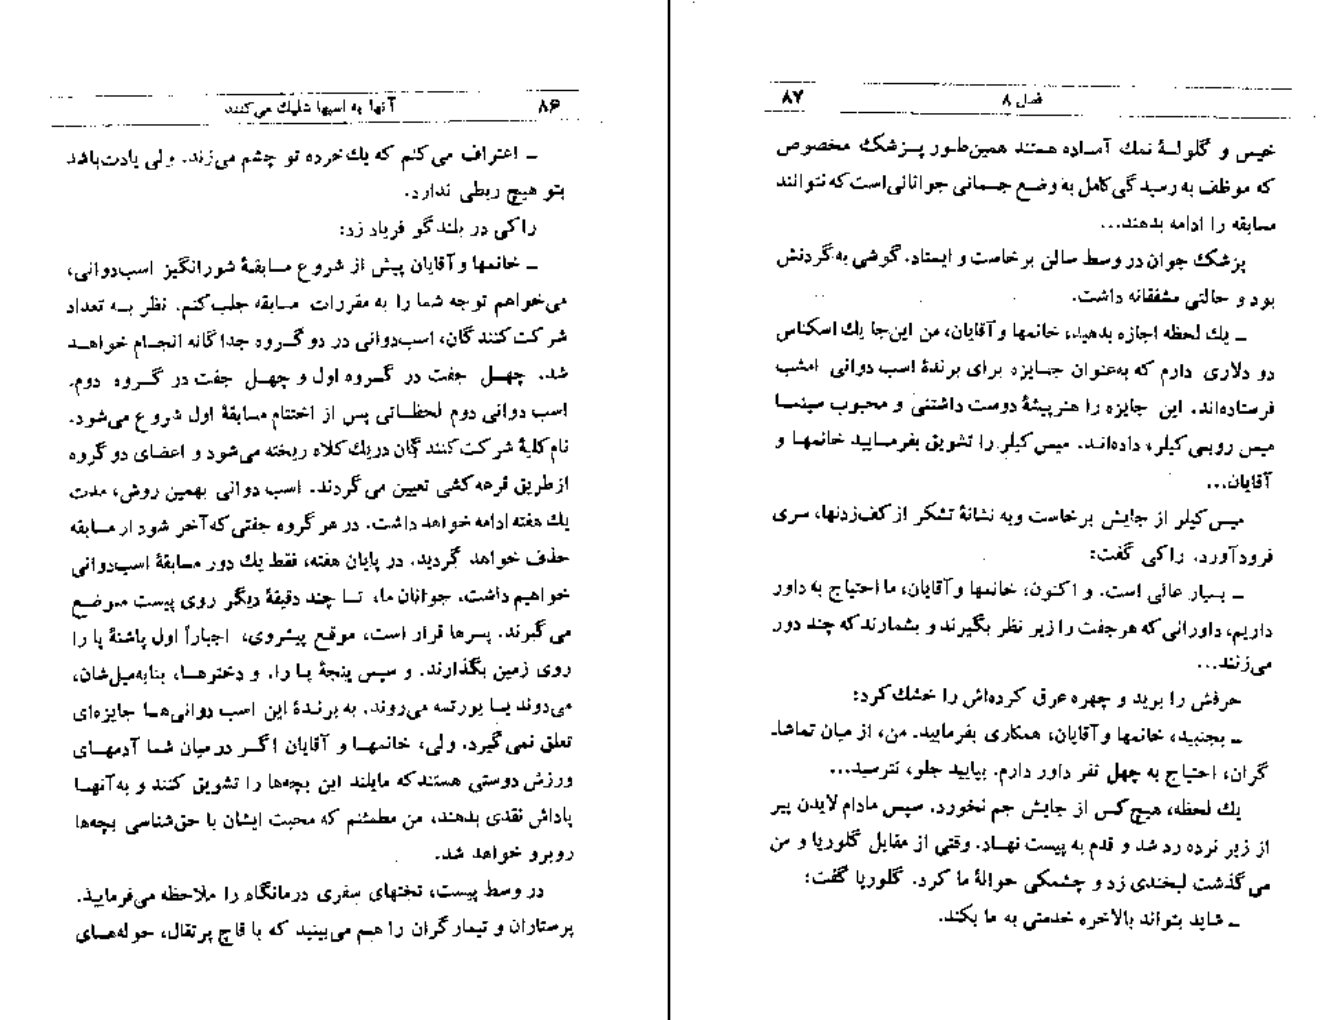 ۸۶ آنها به اسبها شلیك می‌کنند
ـ اعتراف می‌کنم که یك‌خرده تو چشم می‌زند. ولی یادت‌باشد
بتو هیچ ربطی ندارد.
راکی در بلندگو فریاد زد:
ـ خانمها و آقایان پیش از شروع مسابقهٔ شورانگیز اسب‌دوانی،
می‌خواهم توجه شما را به مقررات مسابقه جلب‌کنم. نظر بـه تعداد
شرکت‌کنندگان، اسب‌دوانی در دو گـروه جداگانه انجـام خواهـد
شد. چهـل جفت در گـروه اول و چهـل جفت در گـروه دوم.
اسب دوانی دوم لحظـاتی پس از اختتام مسابقهٔ اول شروع می‌شود.
نام کلیهٔ شرکت‌کنندگان در یك کلاه ریخته می‌شود و اعضای دو گروه
از طریق قرعه‌کشی تعیین می‌گردند. اسب دوانی بهمین روش، مدت
یك هفته ادامه خواهد داشت. در هر گروه جفتی که آخر شود از مسابقه
حذف خواهد گردید. در پایان هفته، فقط یك دور مسابقهٔ اسب‌دوانی
خواهیم داشت. جوانان ما، تـا چند دقیقهٔ دیگر روی پیست موضع
می‌گیرند. پسرها قرار است، موقع پیشروی، اجباراً اول پاشنهٔ پا را
روی زمین بگذارند. و سپس پنجهٔ پـا را. و دخترهـا، بنابه‌میل‌شان،
می‌دوند یـا یورتمه می‌روند. به برندهٔ این اسب دوانی‌هـا جایزه‌ای
تعلق نمی‌گیرد. ولی، خانمهـا و آقایان اگـر در میان شما آدمهـای
ورزش دوستی هستند که مایلند این بچه‌ها را تشویق کنند و به آنهـا
پاداش نقدی بدهند، من مطمئنم که محبت ایشان با حق‌شناسی بچه‌ها
روبرو خواهد شد.
در وسط پیست، تختهای سفری درمانگاه را ملاحظه می‌فرمایید.
پرستاران و تیمارگران را هـم می‌بینید که با قاچ پرتقال، حوله‌هـای
فصل ۸ ۸۷
خیس و گلولـهٔ نمك آمـاده هستند همین‌طـور پـزشکك مخصوص
که موظف به رسیدگی کامل به وضع جسمانی جوانانی است که نتوانند
مسابقه را ادامه بدهند...
پزشکك جوان در وسط سالن برخاست و ایستاد. گوشی به گردنش
بود و حالتی مشفقانه داشت.
ـ یك لحظه اجازه بدهید، خانمها و آقایان، من این‌جا یك اسکناس
دو دلاری دارم که به‌عنوان جـایزه برای برندهٔ اسب دوانی امشب
فرستاده‌اند. این جایزه را هنرپیشهٔ دوست داشتنی و محبوب سینمـا
میس روبی کیلر، داده‌انـد. میس کیلر را تشویق بفرمـایید خانمهـا و
آقایان...
میس کیلر از جایش برخاست و به نشانهٔ تشکر از کف‌زدنها، سری
فرود آورد. راکی گفت:
ـ بسیار عالی است. و اکنون، خانمها و آقایان، ما احتیاج به داور
داریم، داورانی که هر جفت را زیر نظر بگیرند و بشمارند که چند دور
می‌زنند...
حرفش را برید و چهره عرق کرده‌اش را خشك کرد:
ـ بجنبید، خانمها و آقایان، همکاری بفرمایید. من، از میان تماشاـ
گران، احتیاج به چهل نفر داور دارم. بیایید جلو، نترسید...
یك لحظه، هیچ‌کس از جایش جم نخورد. سپس مادام لایدن پیر
از زیر نرده رد شد و قدم به پیست نهـاد. وقتی از مقابل گلوریا و من
می‌گذشت لبخندی زد و چشمکی حوالهٔ ما کرد. گلوریا گفت:
ـ شاید بتواند بالاخره خدمتی به ما بکند.